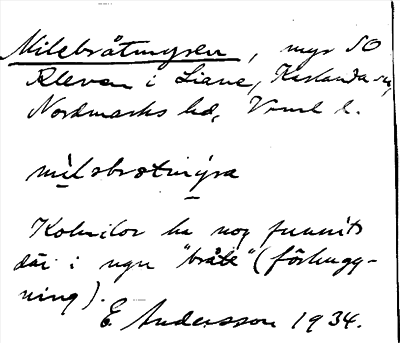 Milebråtmyren, myr SO
Kleven i Liane, Karlanda sn,
Nordmarks hd, Vrml l.
mìlebrɷtmýra
Kolmilor ha nog funnits
där i ngn "bråte" (förhugg-
ning).
E. Andersson 1934.